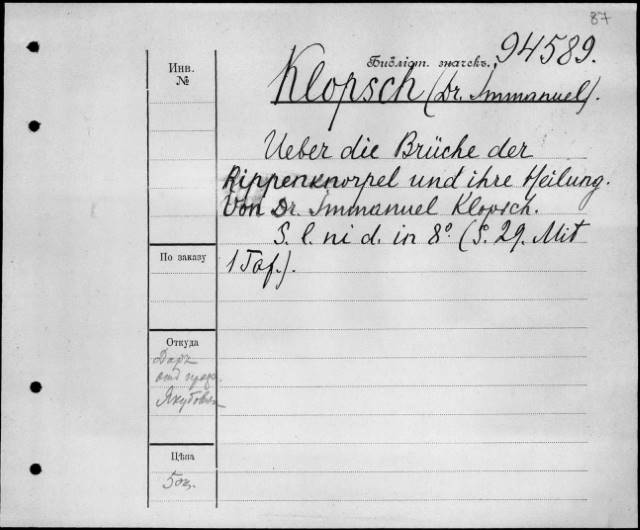 87
Библіот. значекъ. 94589.
Инв.
№
Klopsch (Dr. Immanuel).
Ueber die Brüche der
Rippenknorpel und ihre Heilung.
Von Dr. Immanuel Klopsch.
S. l. ni d. in 8º. (S. 29. Mit
1 Taf.).
По заказу
Откуда
Даръ
отъ
Цѣна